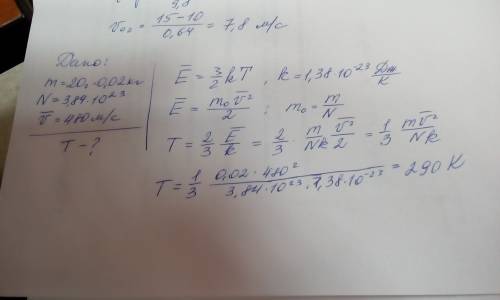 9,8
v₀₂ = (15-10)/0,64 = 7,8 м/с
Дано:
m = 20, -0,02 кг
N = 3,84·10²³
v̅ = 480 м/с
T - ?
E̅ = 3/2 kT , k = 1,38·10⁻²³ Дж/К
E̅ = m₀v̅²/2 ; m₀ = m/N
T = 2/3 E̅/k = 2/3 · m/Nk v̅²/2 = 1/3 mv̅²/Nk
T = 1/3 0,02·480²/3,84·10²³·1,38·10⁻²³ = 290 К